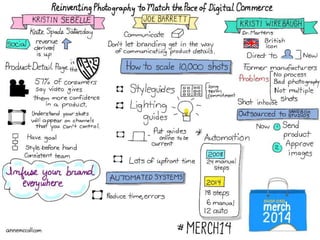 Reinventing Photography to Match the Pace of Digital Commerce
KRISTIN SEBELLE
Kate Spade Saturday
Social
revenue
derived
is up
Product Detail Page is the
57% of consumers
say video gives
them more confidence
in a product.
Understand your shots
will appear on channels
that you can't control.
Have goal
Style before hand
Consistent team
Infuse your brand
everywhere
annemccoll.com
JOE BARRETT
Communicate
Don't let branding get in the way
of communicating product details.
How to scale 10,000 shots
Styleguides
Lighting
guides
Put guides
online to be
current
Lots of upfront time
AUTOMATED SYSTEMS
Reduce time, errors
Automation
2008
24 manual
steps
2014
18 steps
6 manual
12 auto
#MERCH14
KRISTI WIREBAUGH
Dr. Martens
British
icon
Direct to
New!
Former manufacturers
Problems
No process
Bad photography
Not multiple
shots
Shot inhouse
Outsourced to
Now
Send
product
Approve
images
merch
2014